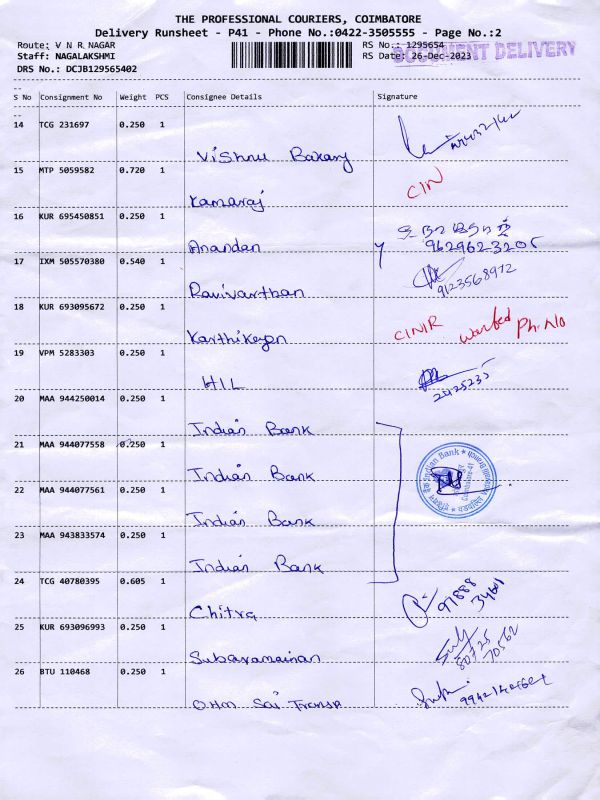 THE PROFESSIONAL COURIERS, COIMBATORE
Delivery Runsheet - P41 - Phone No.:0422-3505555 - Page No.:2
Route: V N R NAGAR RS No.: 1295654
Staff: NAGALAKSHMI RS Date: 26-Dec-2023
DOCUMENT DELIVERY
DRS No.: DCJB129565402
S No Consignment No Weight PCS Consignee Details Signature
14 TCG 231697 0.250 1
Vishnu Bakary
15 MTP 5059582 0.720 1
Kamaraj CIN
16 KUR 695450851 0.250 1
Anandan 9629623205
17 IXM 505570380 0.540 1
Ravivarthan 9123568972
18 KUR 693095672 0.250 1
Karthikeyan CINIR wanted Ph.No
19 VPM 5283303 0.250 1
HIL 2425235
20 MAA 944250014 0.250 1
Indian Bank
21 MAA 944077558 0.250 1
Indian Bank
22 MAA 944077561 0.250 1
Indian Bank
23 MAA 943833574 0.250 1
Indian Bank
24 TCG 40780395 0.605 1
Chitra 97888 34601
25 KUR 693096993 0.250 1
Subaramainan 80725 70562
26 BTU 110468 0.250 1
OHM Sai Transp